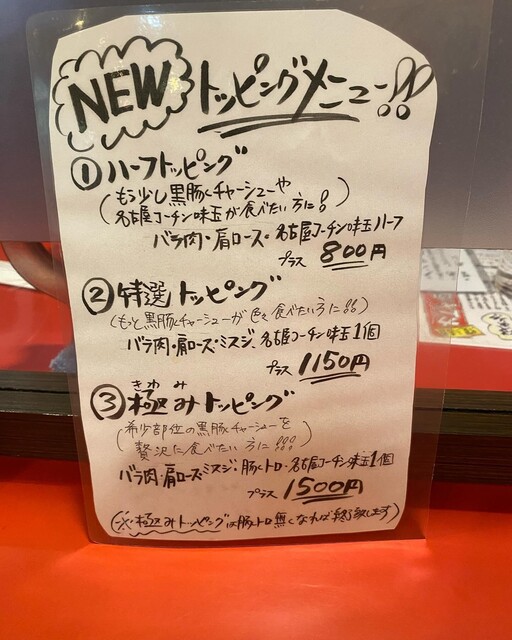 NEW トッピングメニュー!!
① ハーフトッピング
(もう少し黒豚チャーシューや
名古屋コーチン味玉が食べたい方に!)
バラ肉・肩ロース・名古屋コーチン味玉ハーフ
プラス 800円
② 特選トッピング
(もっと黒豚チャーシューが色々食べたい方に!!)
バラ肉・肩ロース・ミスジ・名古屋コーチン味玉1個
プラス 1150円
きわ み
③ 極みトッピング
(希少部位の黒豚チャーシューを
贅沢に食べたい方に!!!)
バラ肉・肩ロース・ミスジ・豚トロ・名古屋コーチン味玉1個
プラス 1500円
(※極みトッピングは豚トロ無くなれば終了致します)